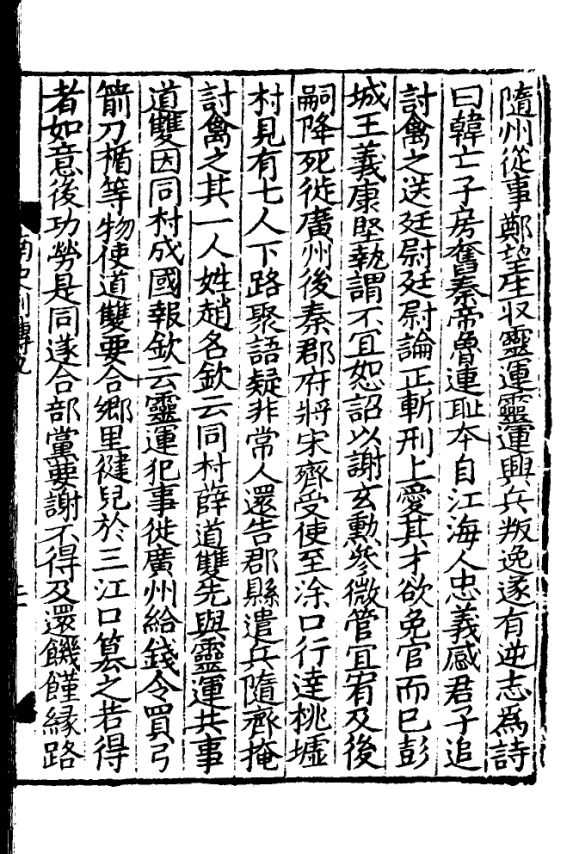 隨州從事鄭望生収靈運靈運興兵叛逸遂有逆志為詩
曰韓亡子房奮秦帝魯連耻本自江海人忠義感君子追
討禽之送廷尉廷尉論正斬刑上愛其才欲免官而已彭
城王義康堅執謂不宜恕詔以謝玄勲參微管宜宥及後
嗣降死徙廣州後秦郡府將宋齊受使至涂口行達桃墟
村見有七人下路聚語疑非常人還告郡縣遣兵隨齊掩
討禽之其一人姓趙名欽云同村薛道雙先與靈運共事
道雙因同村成國報欽云靈運犯事徙廣州給錢令買弓
箭刀楯等物使道雙要合鄉里健兒於三江口篡之若得
者如意後功勞是同遂合部黨要謝不得及還饑饉緣路
南史列傳九